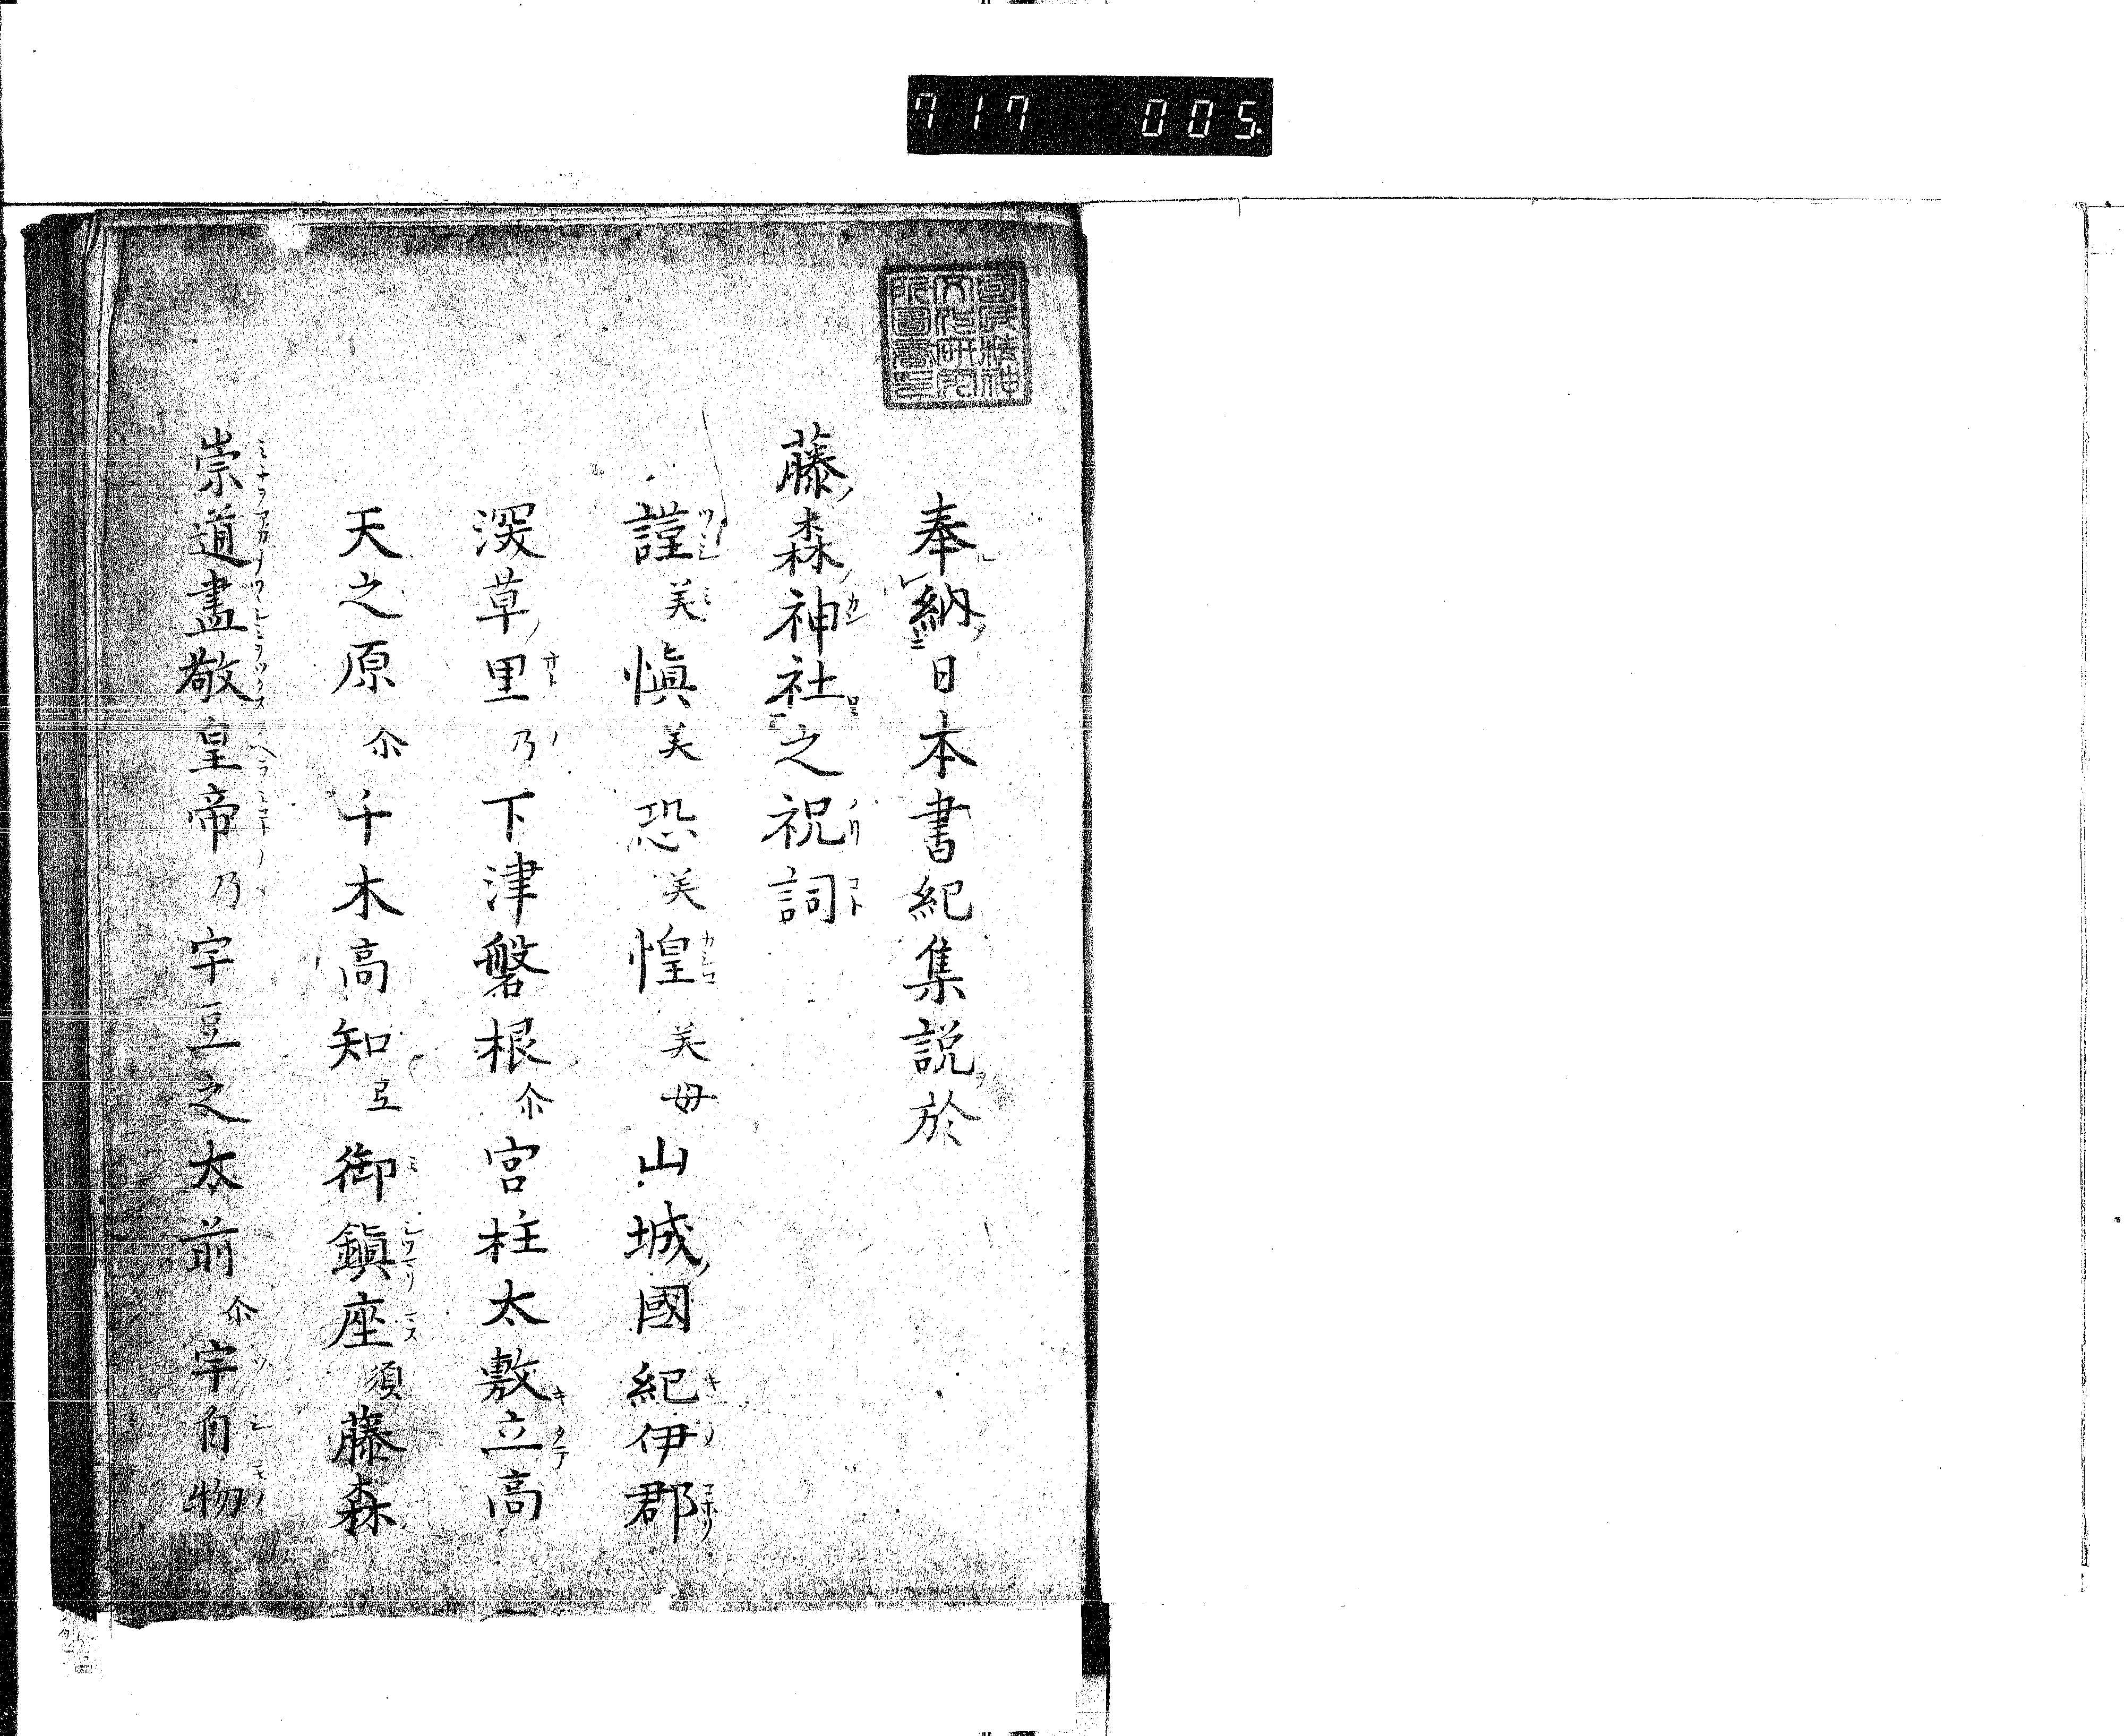 717 005
國民精神
文化研究
所圖書印
奉納日本書紀集説於
藤森神社之祝詞
謹美愼美恐美惶美毋山城國紀伊郡
深草里乃下津磐根尒宮柱太敷立高
天之原尒千木高知弖御鎭座須藤森
崇道盡敬皇帝乃宇豆之太前尒宇自物